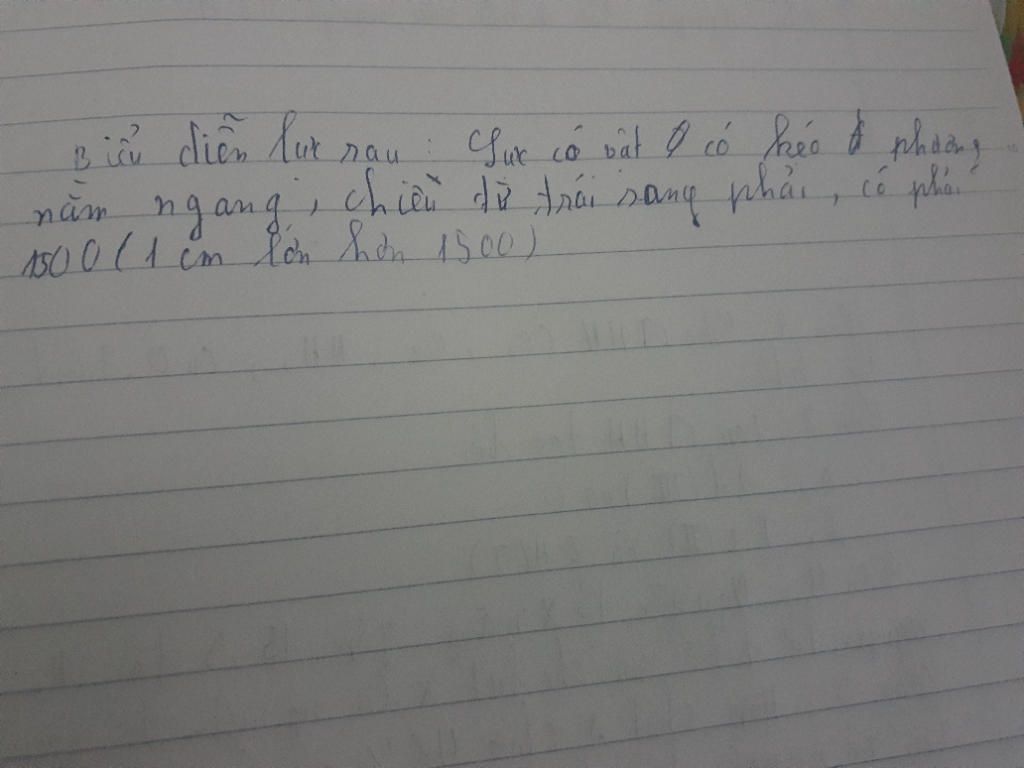 Biểu diễn lực sau : Lực có vật có kéo phương
nằm ngang, chiều từ trái sang phải, có phải
1500 (1 cm lớn hơn 1500)